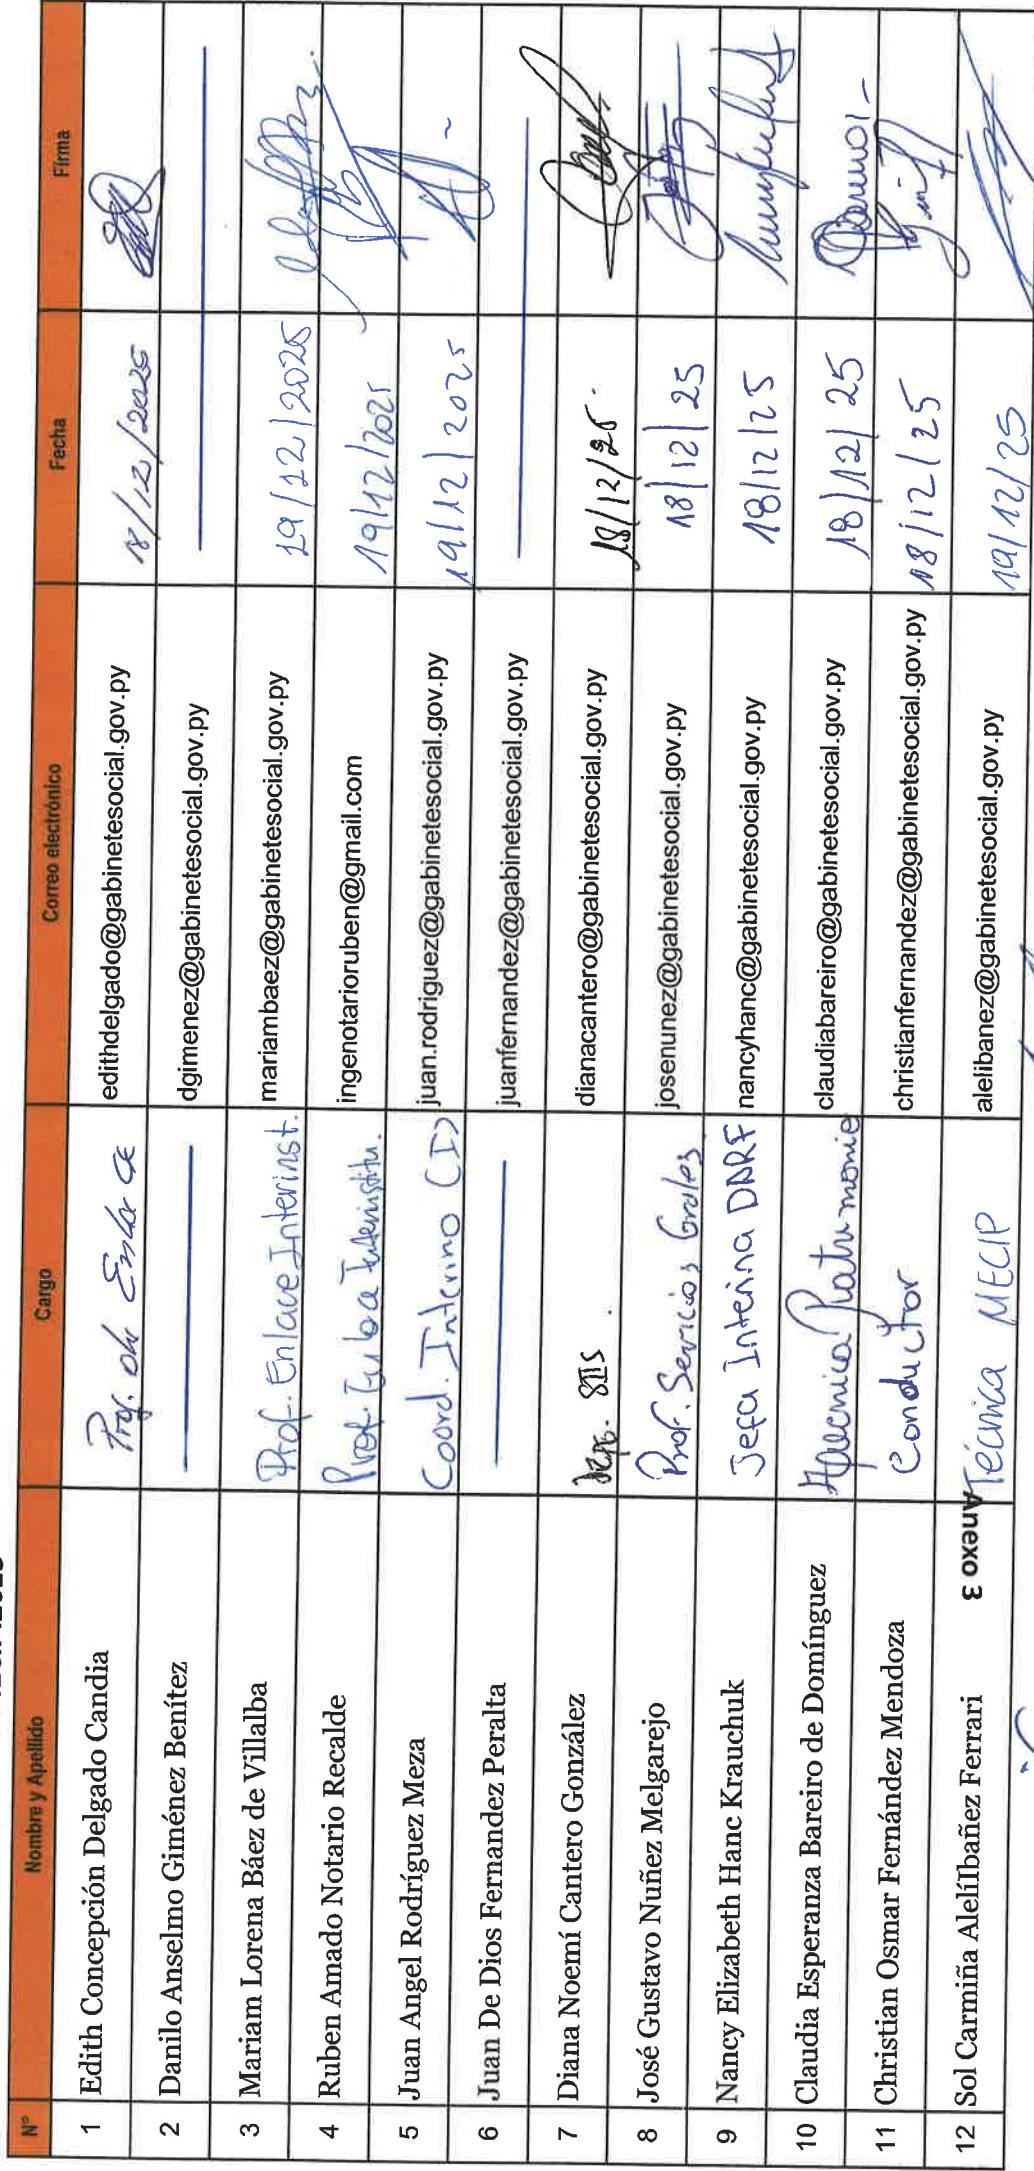 N° Nombre y Apellido Cargo Correo electrónico Fecha Firma
1 Edith Concepción Delgado Candia Prof. de Enlace edithdelgado@gabinetesocial.gov.py 18/12/2025
2 Danilo Anselmo Giménez Benítez dgimenez@gabinetesocial.gov.py
3 Mariam Lorena Báez de Villalba Prof. Enlace Interinst. mariambaez@gabinetesocial.gov.py 19/12/2025
4 Ruben Amado Notario Recalde Prof. ingenotarioruben@gmail.com 19/12/2025
5 Juan Angel Rodríguez Meza Coord. Interino (I) juan.rodriguez@gabinetesocial.gov.py 19/12/2025
6 Juan De Dios Fernandez Peralta juanfernandez@gabinetesocial.gov.py
7 Diana Noemí Cantero González SIIS dianacantero@gabinetesocial.gov.py 18/12/25.
8 José Gustavo Nuñez Melgarejo Prof. Servicios Grales josenunez@gabinetesocial.gov.py 18/12/25
9 Nancy Elizabeth Hanc Krauchuk Jefa Interina DARF nancyhanc@gabinetesocial.gov.py 18/12/25
10 Claudia Esperanza Bareiro de Domínguez claudiabareiro@gabinetesocial.gov.py 18/12/25
11 Christian Osmar Fernández Mendoza Conductor christianfernandez@gabinetesocial.gov.py 18/12/25
12 Sol Carmiña AlelíIbañez Ferrari Técnica MECIP alelibanez@gabinetesocial.gov.py 19/12/25
Anexo 3